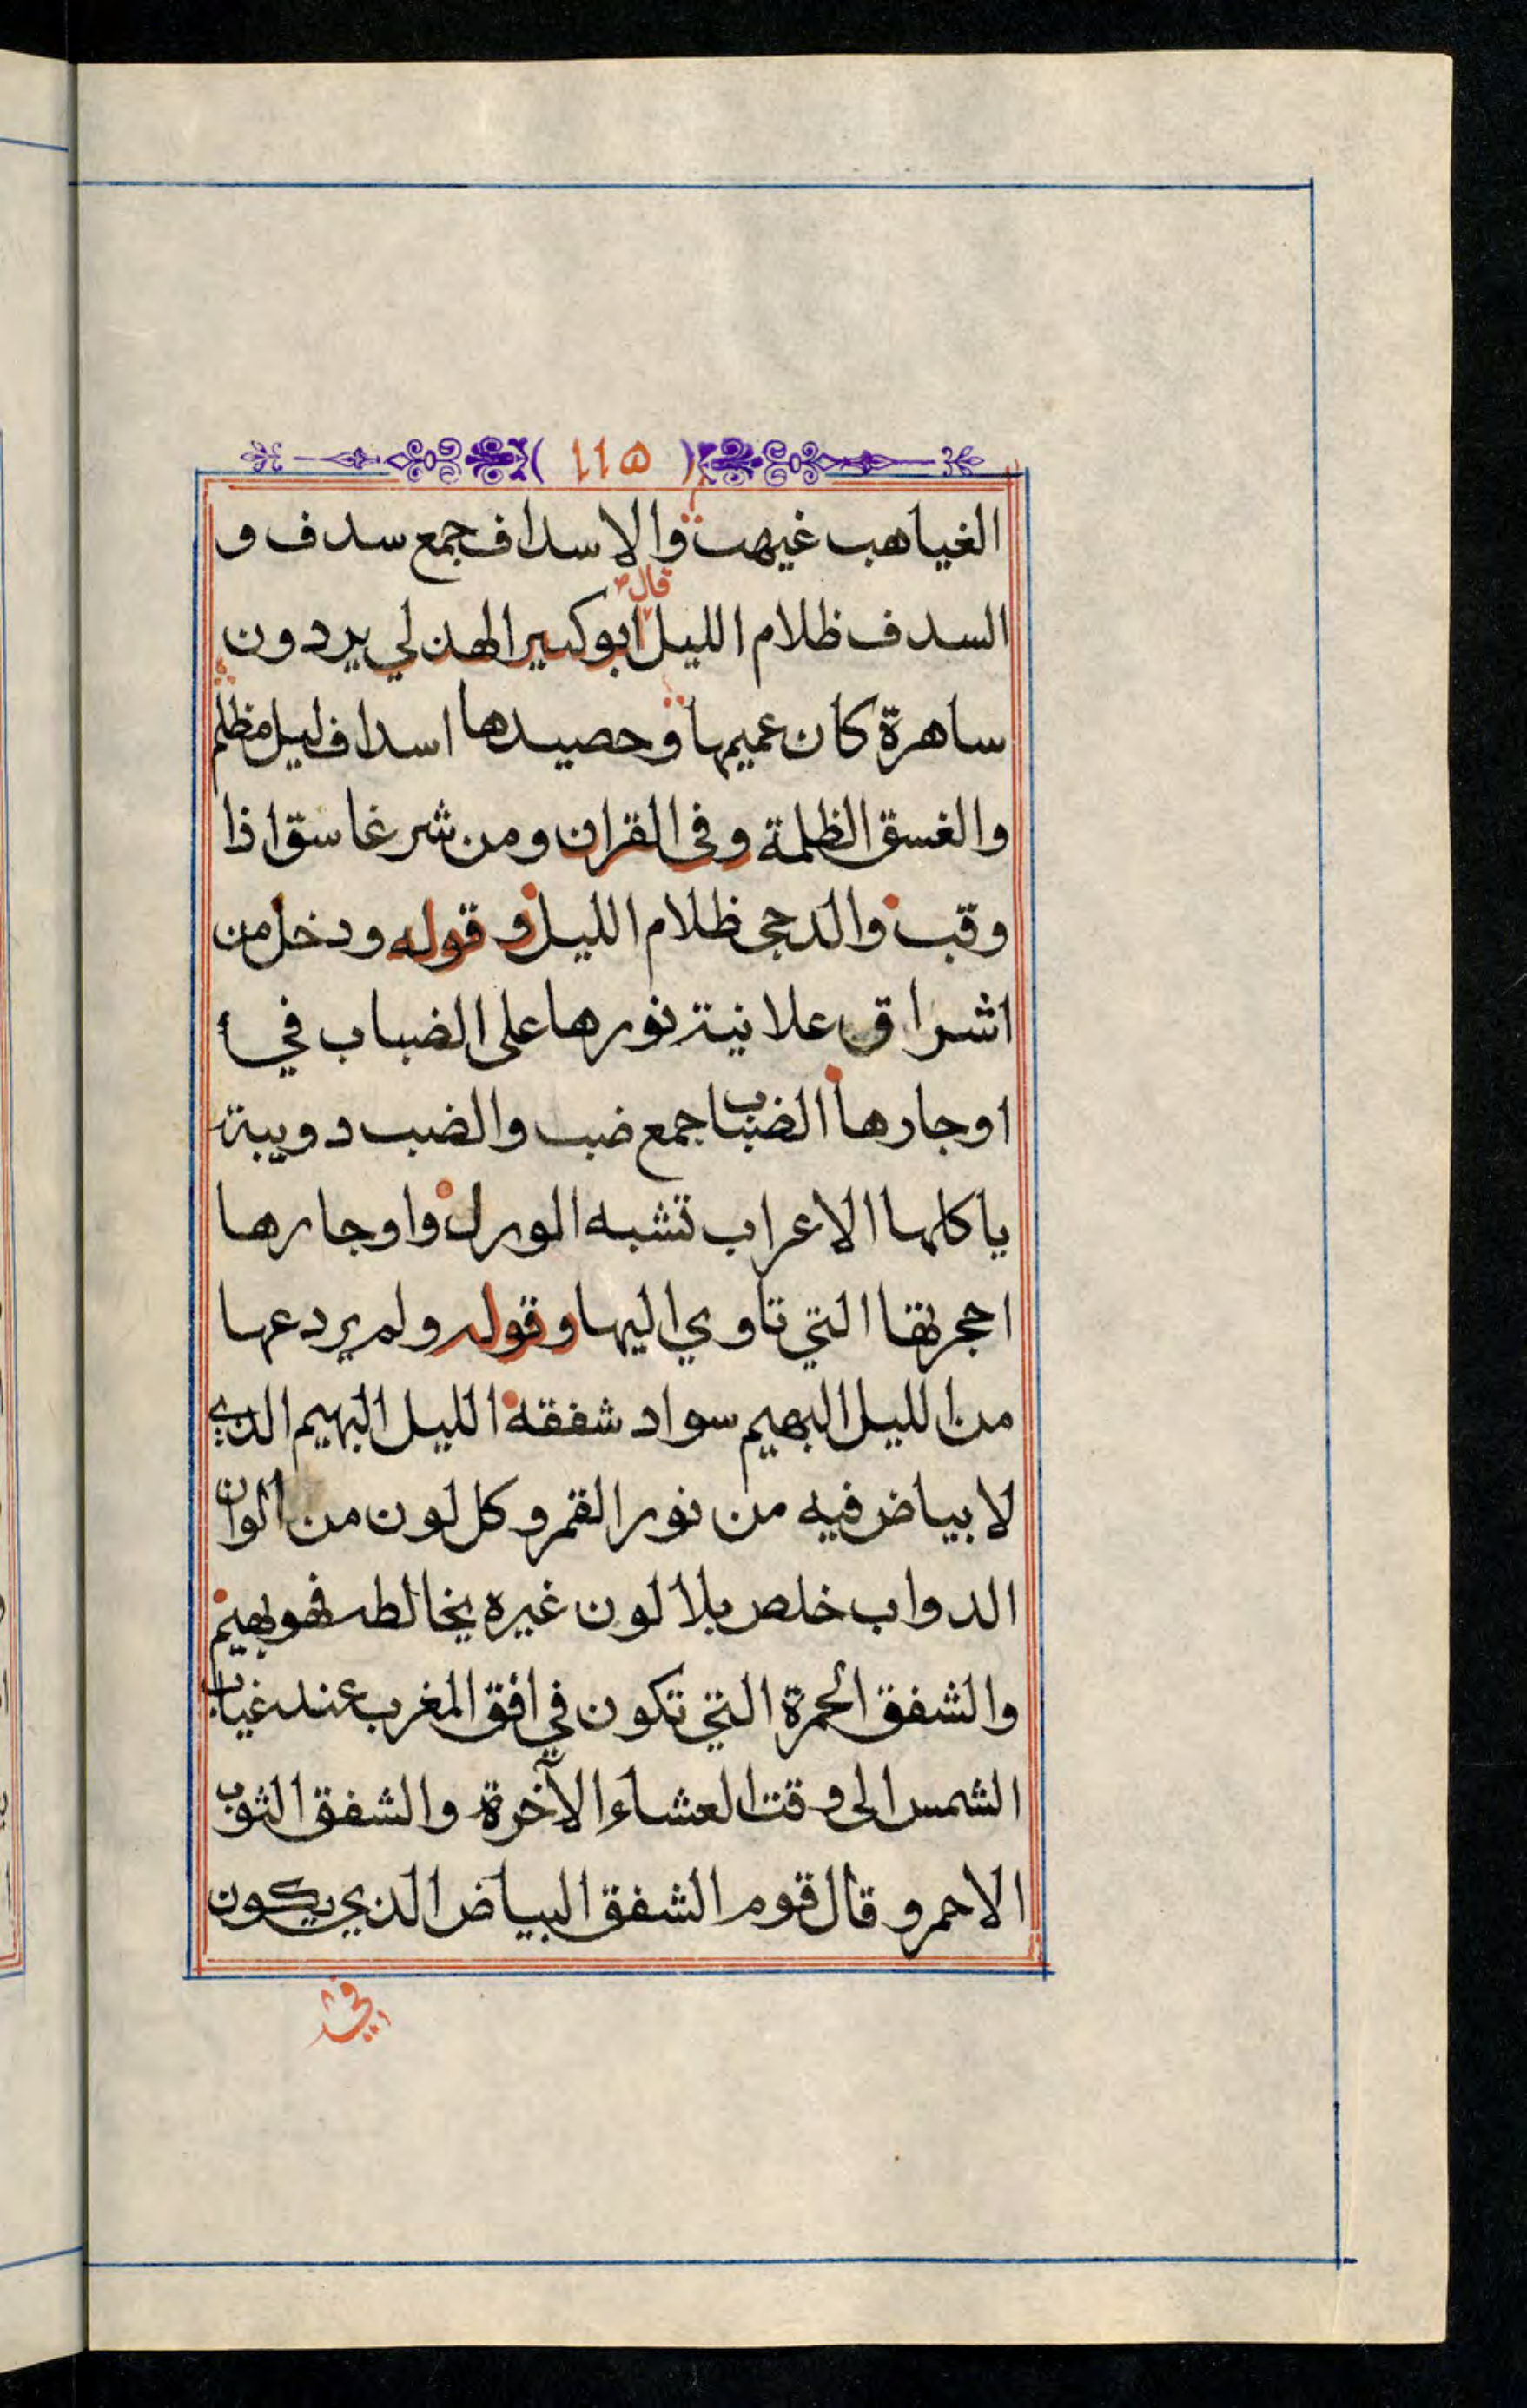 ( ١١٥ )
الغياهب غيهب والاسداف جمع سدف و
السدف ظلام الليل قال ابوكبير الهذلي يردون
ساهرة كان عميمها وحصيدها اسداف ليل مظلم
والغسق الظلمة وفي القران ومن شر غاسق اذا
وقب والدجى ظلام الليل وقوله ودخل من
اشراق علانية نورها على الضباب في
اوجارها الضباب جمع ضب والضب دويبة
ياكلها الاعراب تشبه الورل واوجارها
احجرتها التي تاوي اليها وقوله ولم يردعها
من الليل البهيم سواد شفقه الليل البهيم الذي
لا بياض فيه من نور القمر وكل لون من الوان
الدواب خلص بلا لون غيره يخالطه فهو بهيم
والشفق الحمرة التي تكون في افق المغرب عند غياب
الشمس الى وقت العشاء الآخرة والشفق الثوب
الاحمر وقال قوم الشفق البياض الذي يكون
في